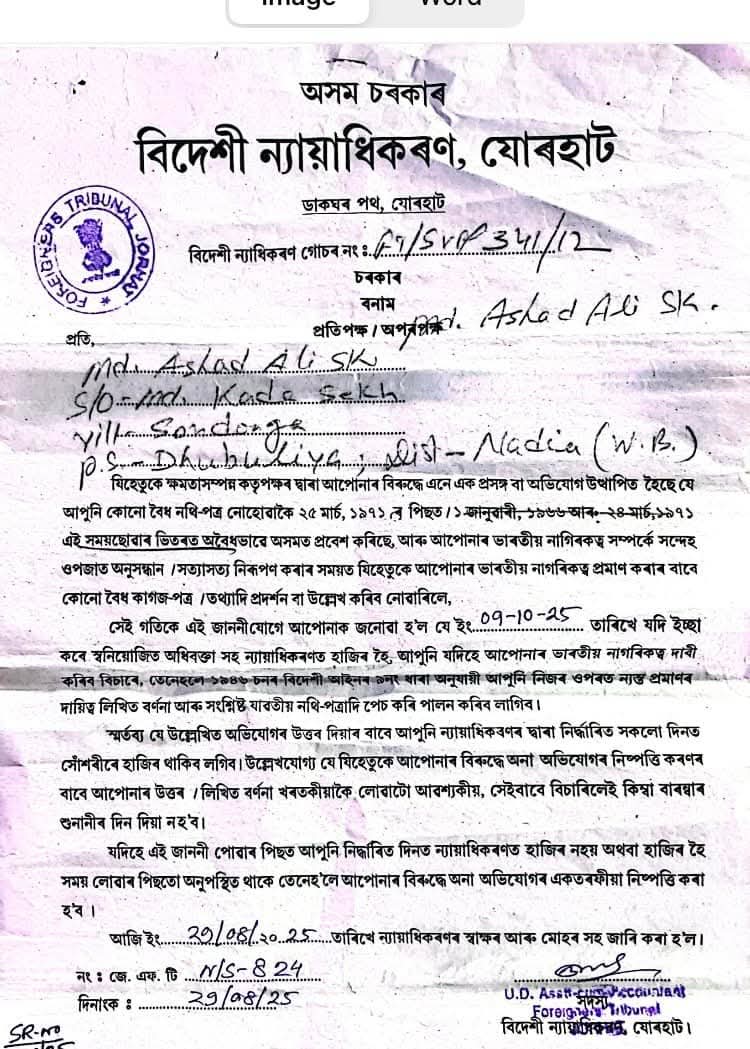 Image Word
অসম চৰকাৰ
বিদেশী ন্যায়াধিকৰণ, যোৰহাট
ডাকঘৰ পথ, যোৰহাট
FOREIGNERS TRIBUNAL JORHAT
বিদেশী ন্যাধিকৰণ গোচৰ নং ঃ 341/12
চৰকাৰ
বনাম
প্ৰতিপক্ষ / অপৰপক্ষ Md. Ashad Ali SK.
প্ৰতি,
Md. Ashad Ali SK
S/O - Md. Kada Sekh
Vill- Sondonga
P.S- Dhubuliya, Dist- Nadia (W.B.)
যিহেতুকে ক্ষমতাসম্পন্ন কতৃপক্ষৰ দ্বাৰা আপোনাৰ বিৰুদ্ধে এনে এক প্ৰসঙ্গ বা অভিযোগ উত্থাপিত হৈছে যে
আপুনি কোনো বৈধ নথি-পত্ৰ নোহোৱাকৈ ২৫ মাৰ্চ, ১৯৭১ ৰ পিছত / ১ জানুৱাৰী, ১৯৬৬ আৰু ২৪ মাৰ্চ, ১৯৭১
এই সময়ছোৱাৰ ভিতৰত অবৈধভাৱে অসমত প্ৰবেশ কৰিছে, আৰু আপোনাৰ ভাৰতীয় নাগিৰকত্ব সম্পৰ্কে সন্দেহ
ওপজাত অনুসন্ধান / সত্যাসত্য নিৰূপণ কৰাৰ সময়ত যিহেতুকে আপোনাৰ ভাৰতীয় নাগৰিকত্ব প্ৰমাণ কৰাৰ বাবে
কোনো বৈধ কাগজ-পত্ৰ / তথ্যাদি প্ৰদৰ্শন বা উল্লেখ কৰিব নোৱাৰিলে,
সেই গতিকে এই জাননীযোগে আপোনাক জনোৱা হ'ল যে ইং 09-10-25 তাৰিখে যদি ইচ্ছা
কৰে স্বনিয়োজিত অধিবক্তা সহ ন্যায়াধিকৰণত হাজিৰ হৈ, আপুনি যদিহে আপোনাৰ ভাৰতীয় নাগৰিকত্ব দাবী
কৰিব বিচাৰে, তেনেহলে ১৯৪৬ চনৰ বিদেশী আইনৰ ৯নং ধাৰা অনুযায়ী আপুনি নিজৰ ওপৰত ন্যস্ত প্ৰমাণৰ
দায়িত্ব লিখিত বৰ্ণনা আৰু সংশ্লিষ্ট যাবতীয় নথি-পত্ৰাদি পেচ কৰি পালন কৰিব লাগিব।
স্মৰ্তব্য যে উল্লেখিত অভিযোগৰ উত্তৰ দিয়াৰ বাবে আপুনি ন্যায়াধিকৰণৰ দ্বাৰা নিৰ্দ্ধাৰিত সকলো দিনত
সোঁশৰীৰে হাজিৰ থাকিব লগিব। উল্লেখযোগ্য যে যিহেতুকে আপোনাৰ বিৰুদ্ধে অনা অভিযোগৰ নিষ্পত্তি কৰণৰ
বাবে আপোনাৰ উত্তৰ / লিখিত বৰ্ণনা খৰতকীয়াকৈ লোৱাটো আৱশ্যকীয়, সেইবাবে বিচাৰিলেই কিম্বা বাৰম্বাৰ
শুনানীৰ দিন দিয়া নহ'ব।
যদিহে এই জাননী পোৱাৰ পিছত আপুনি নিৰ্দ্ধাৰিত দিনত ন্যায়াধিকৰণত হাজিৰ নহয় অথবা হাজিৰ হৈ
সময় লোৱাৰ পিছতো অনুপস্থিত থাকে তেনেহ'লে আপোনাৰ বিৰুদ্ধে অনা অভিযোগৰ একতৰফীয়া নিষ্পত্তি কৰা
হ'ব।
আজি ইং 29/08/২০25 তাৰিখে ন্যায়াধিকৰণৰ স্বাক্ষৰ আৰু মোহৰ সহ জাৰি কৰা হ'ল।
নং ঃ জে. এফ. টি N/S-824
দিনাংক ঃ 29/08/25
U.D. Asstt-cum-Accountant
সদস্য
Foreigners Tribunal
বিদেশী ন্যায়াধিকৰণ, যোৰহাট।
SR-NO